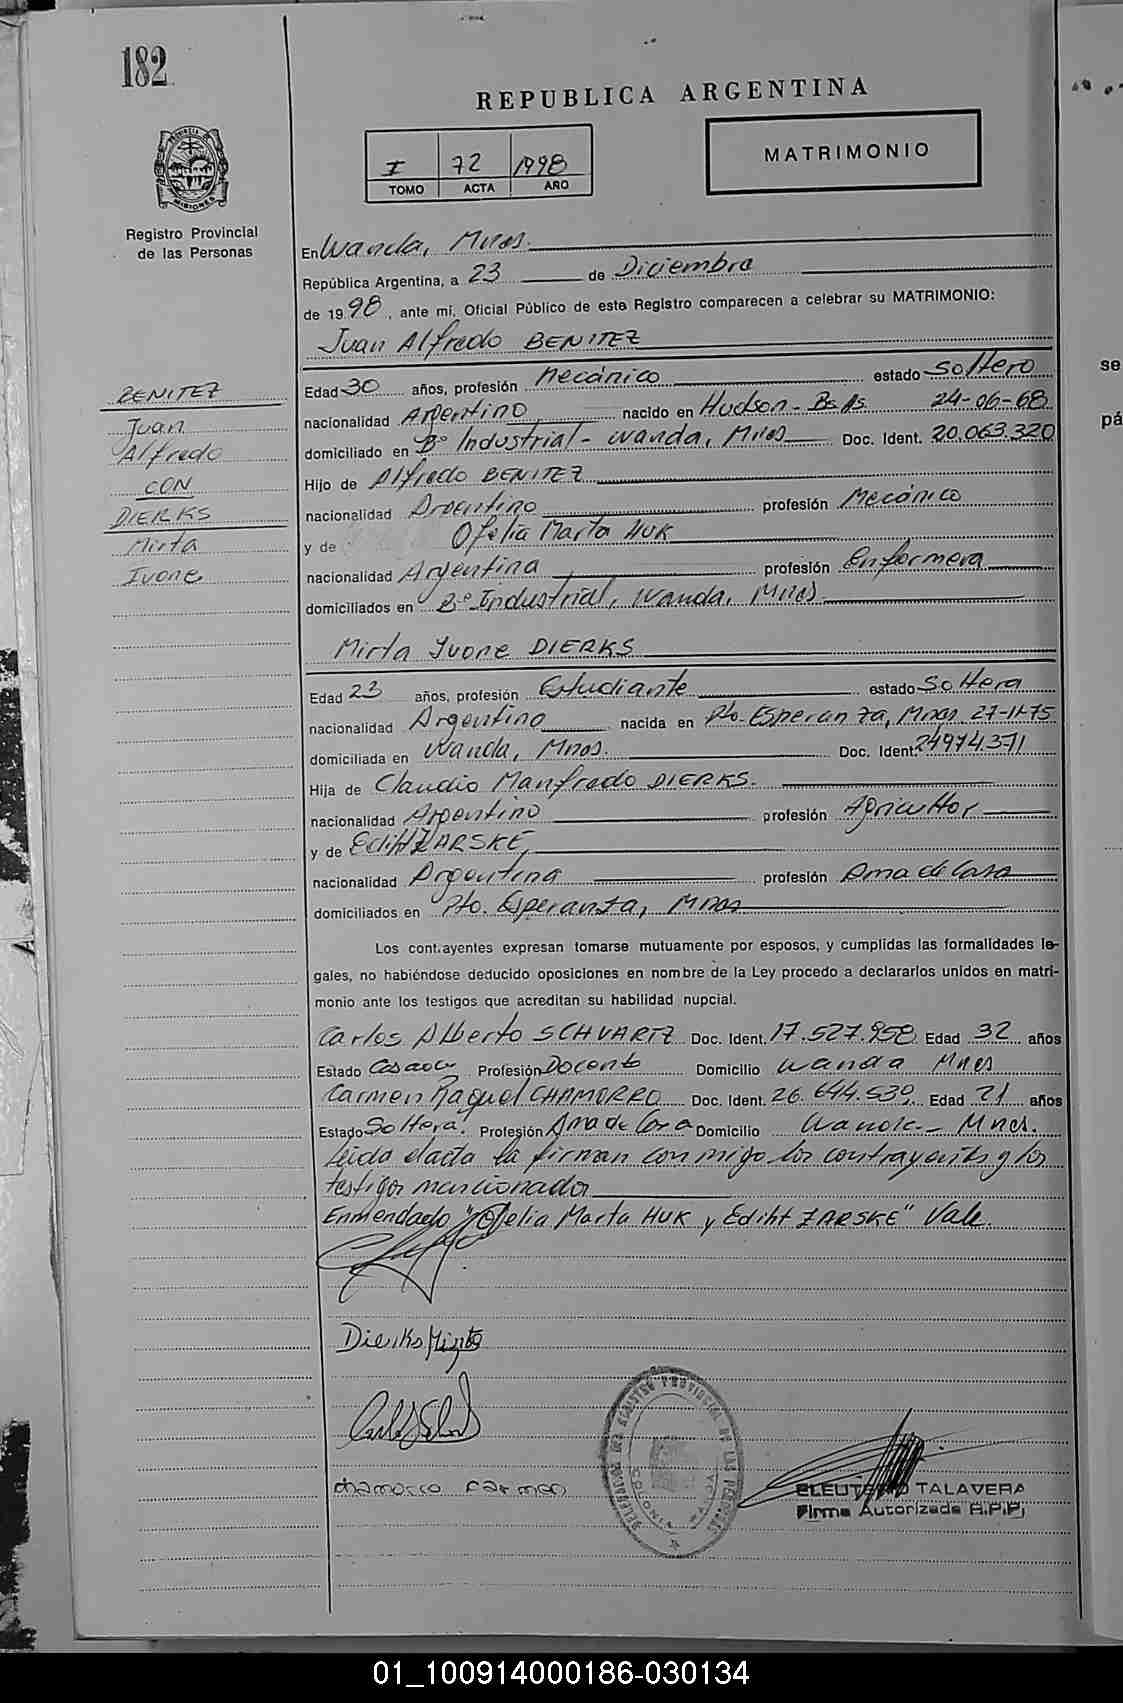 182
REPUBLICA ARGENTINA
I 72 1998
TOMO ACTA AÑO
MATRIMONIO
PROVINCIA DE MISIONES
Registro Provincial
de las Personas
En Wanda, Mnes.
República Argentina, a 23 de Diciembre
de 1998, ante mí, Oficial Público de este Registro comparecen a celebrar su MATRIMONIO:
Juan Alfredo BENITEZ
BENITEZ
Juan
Alfredo
CON
DIERKS
Mirta
Ivone
Edad 30 años, profesión Mecánico estado Soltero
nacionalidad Argentino nacido en Hudson - Bs As. 24-06-68
domiciliado en Bº Industrial - Wanda, Mnes Doc. Ident. 20.063.320
Hijo de Alfredo BENITEZ
nacionalidad Argentino profesión Mecánico
y de Ofelia Marta HUK
nacionalidad Argentina profesión Enfermera
domiciliados en Bº Industrial, Wanda, Mnes
Mirta Ivone DIERKS
Edad 23 años, profesión Estudiante estado Soltera
nacionalidad Argentino nacida en Pto. Esperanza, Mnes. 27-11-75
domiciliada en Wanda, Mnes. Doc. Ident. 24974.371
Hija de Claudio Manfredo DIERKS.
nacionalidad Argentino profesión Agricultor
y de Ediht ZARSKE,
nacionalidad Argentina profesión Ama de Casa
domiciliados en Pto. Esperanza, Mnes
Los contrayentes expresan tomarse mutuamente por esposos, y cumplidas las formalidades le-
gales, no habiéndose deducido oposiciones en nombre de la Ley procedo a declararlos unidos en matri-
monio ante los testigos que acreditan su habilidad nupcial.
Carlos Alberto SCHVARTZ Doc. Ident. 17.527.958 Edad 32 años
Estado Casado Profesión Docente Domicilio Wanda Mnes
Carmen Raquel CHAMORRO Doc. Ident. 26.644.539. Edad 21 años
Estado Soltera. Profesión Ama de Casa Domicilio Wanda - Mnes.
Leida el acta la firman conmigo los contrayentes y los
testigos mencionados
Enmendado "Ofelia Marta HUK y Ediht ZARSKE" Vale.
Dierks Mirta
chamorro carmen
ELEUTERIO TALAVERA
Firma Autorizada R.P.P.
se
pá
01_100914000186-030134